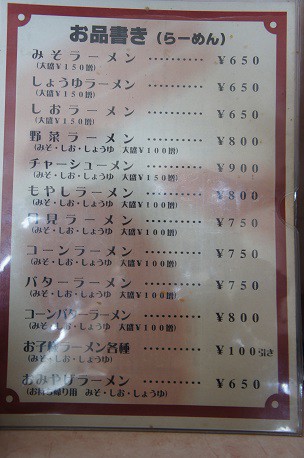 お品書き（らーめん）
みそラーメン ………… ￥650
（大盛￥150増）
しょうゆラーメン ………… ￥650
（大盛￥150増）
しおラーメン ………… ￥650
（大盛￥150増）
野菜ラーメン ………… ￥800
（みそ・しお・しょうゆ 大盛￥100増）
チャーシューメン ………… ￥900
（みそ・しお・しょうゆ 大盛￥150増）
もやしラーメン ………… ￥800
（みそ・しお・しょうゆ 大盛￥100増）
月見ラーメン ………… ￥750
（みそ・しお・しょうゆ 大盛￥100増）
コーンラーメン ………… ￥750
（みそ・しお・しょうゆ 大盛￥100増）
バターラーメン ………… ￥750
（みそ・しお・しょうゆ 大盛￥100増）
コーンバターラーメン ………… ￥800
（みそ・しお・しょうゆ 大盛￥100増）
お子様ラーメン各種 ………… ￥100引き
（みそ・しお・しょうゆ）
おみやげラーメン ………… ￥650
（お持ち帰り用 みそ・しお・しょうゆ）